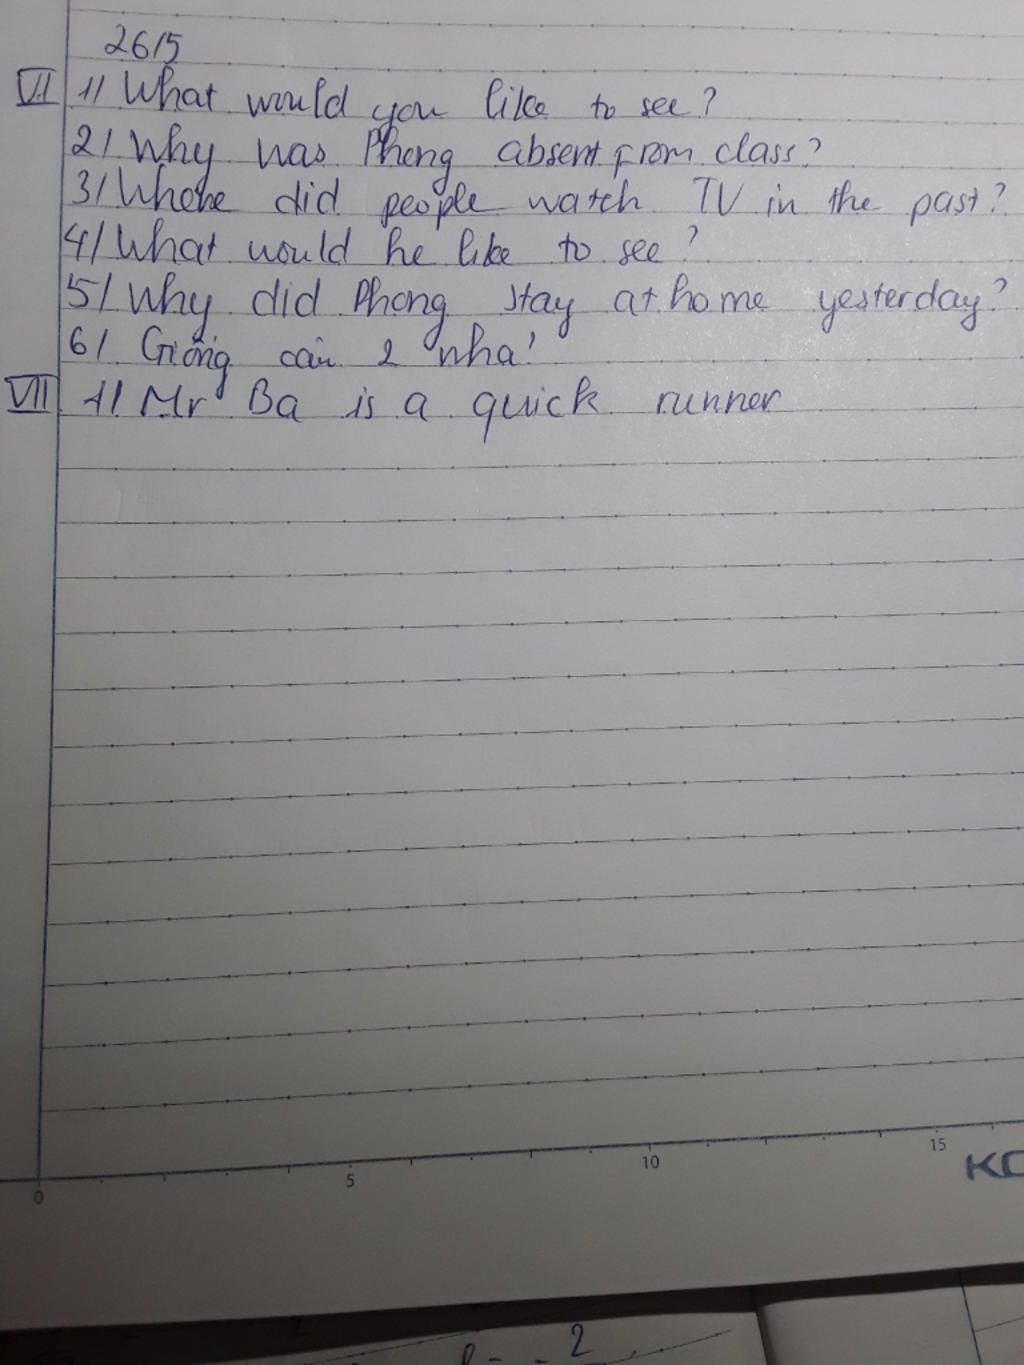 26/5
VI 1/ What would you like to see?
2/ Why was Phong absent from class?
3/ Where did people watch TV in the past?
4/ What would he like to see?
5/ Why did Phong stay at home yesterday?
6/ Giống câu 2 nha!
VII 1/ Mr Ba is a quick runner
0 5 10 15
KO
2